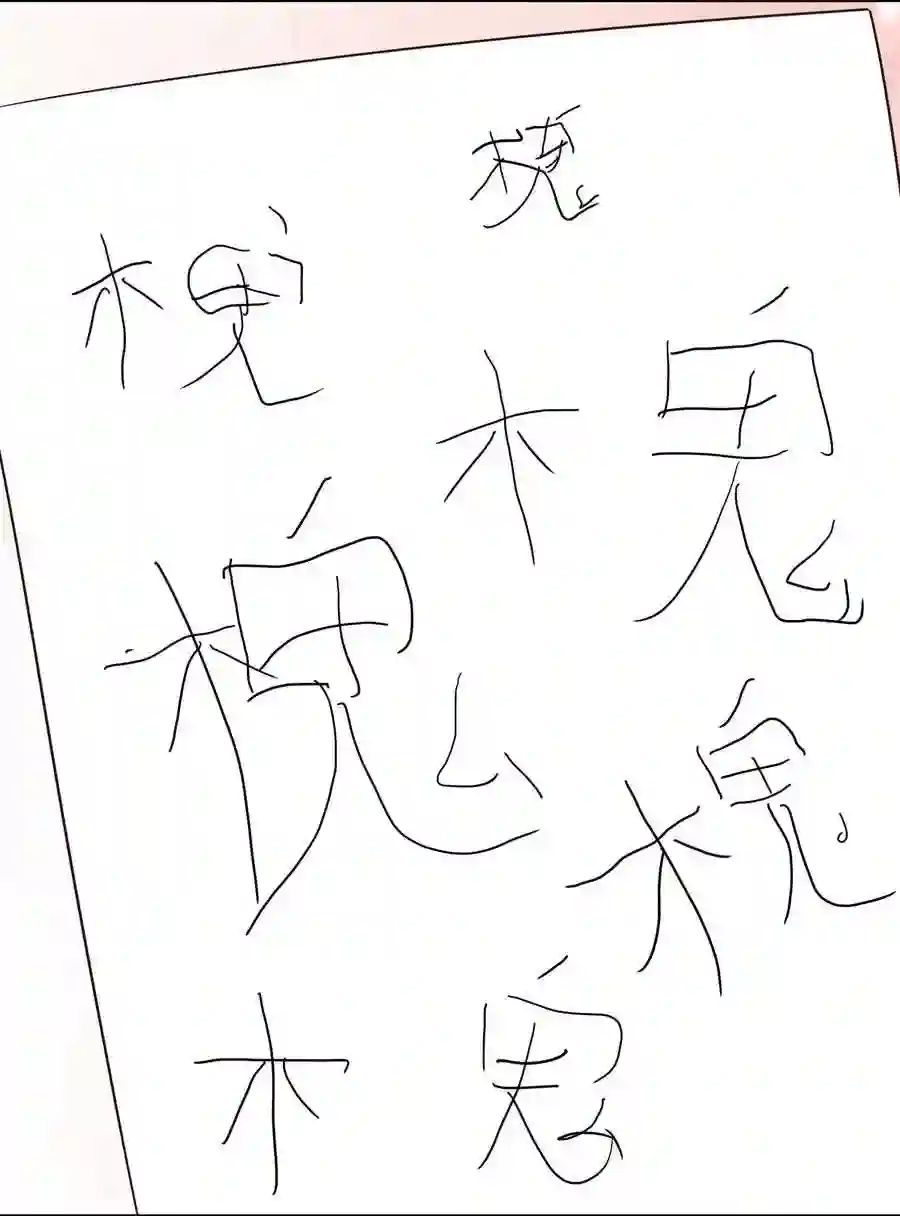 槐
槐
槐
槐
槐
槐